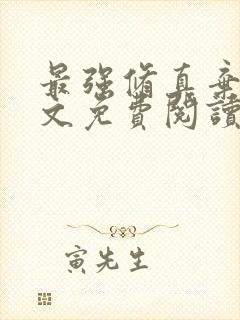 最强脩真棄
文免費閱讀
寅先生